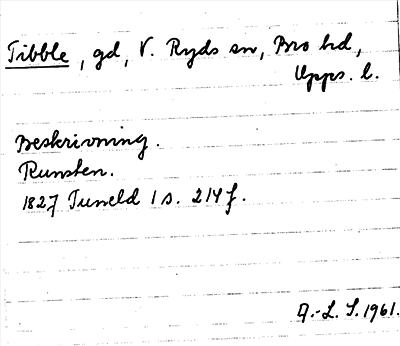 Tibble, gd, V. Ryds sn, Bro hd,
Upps. l.
Beskrivning.
Runsten.
1827 Tuneld 1 s. 214 f.
A.-L. S. 1961.